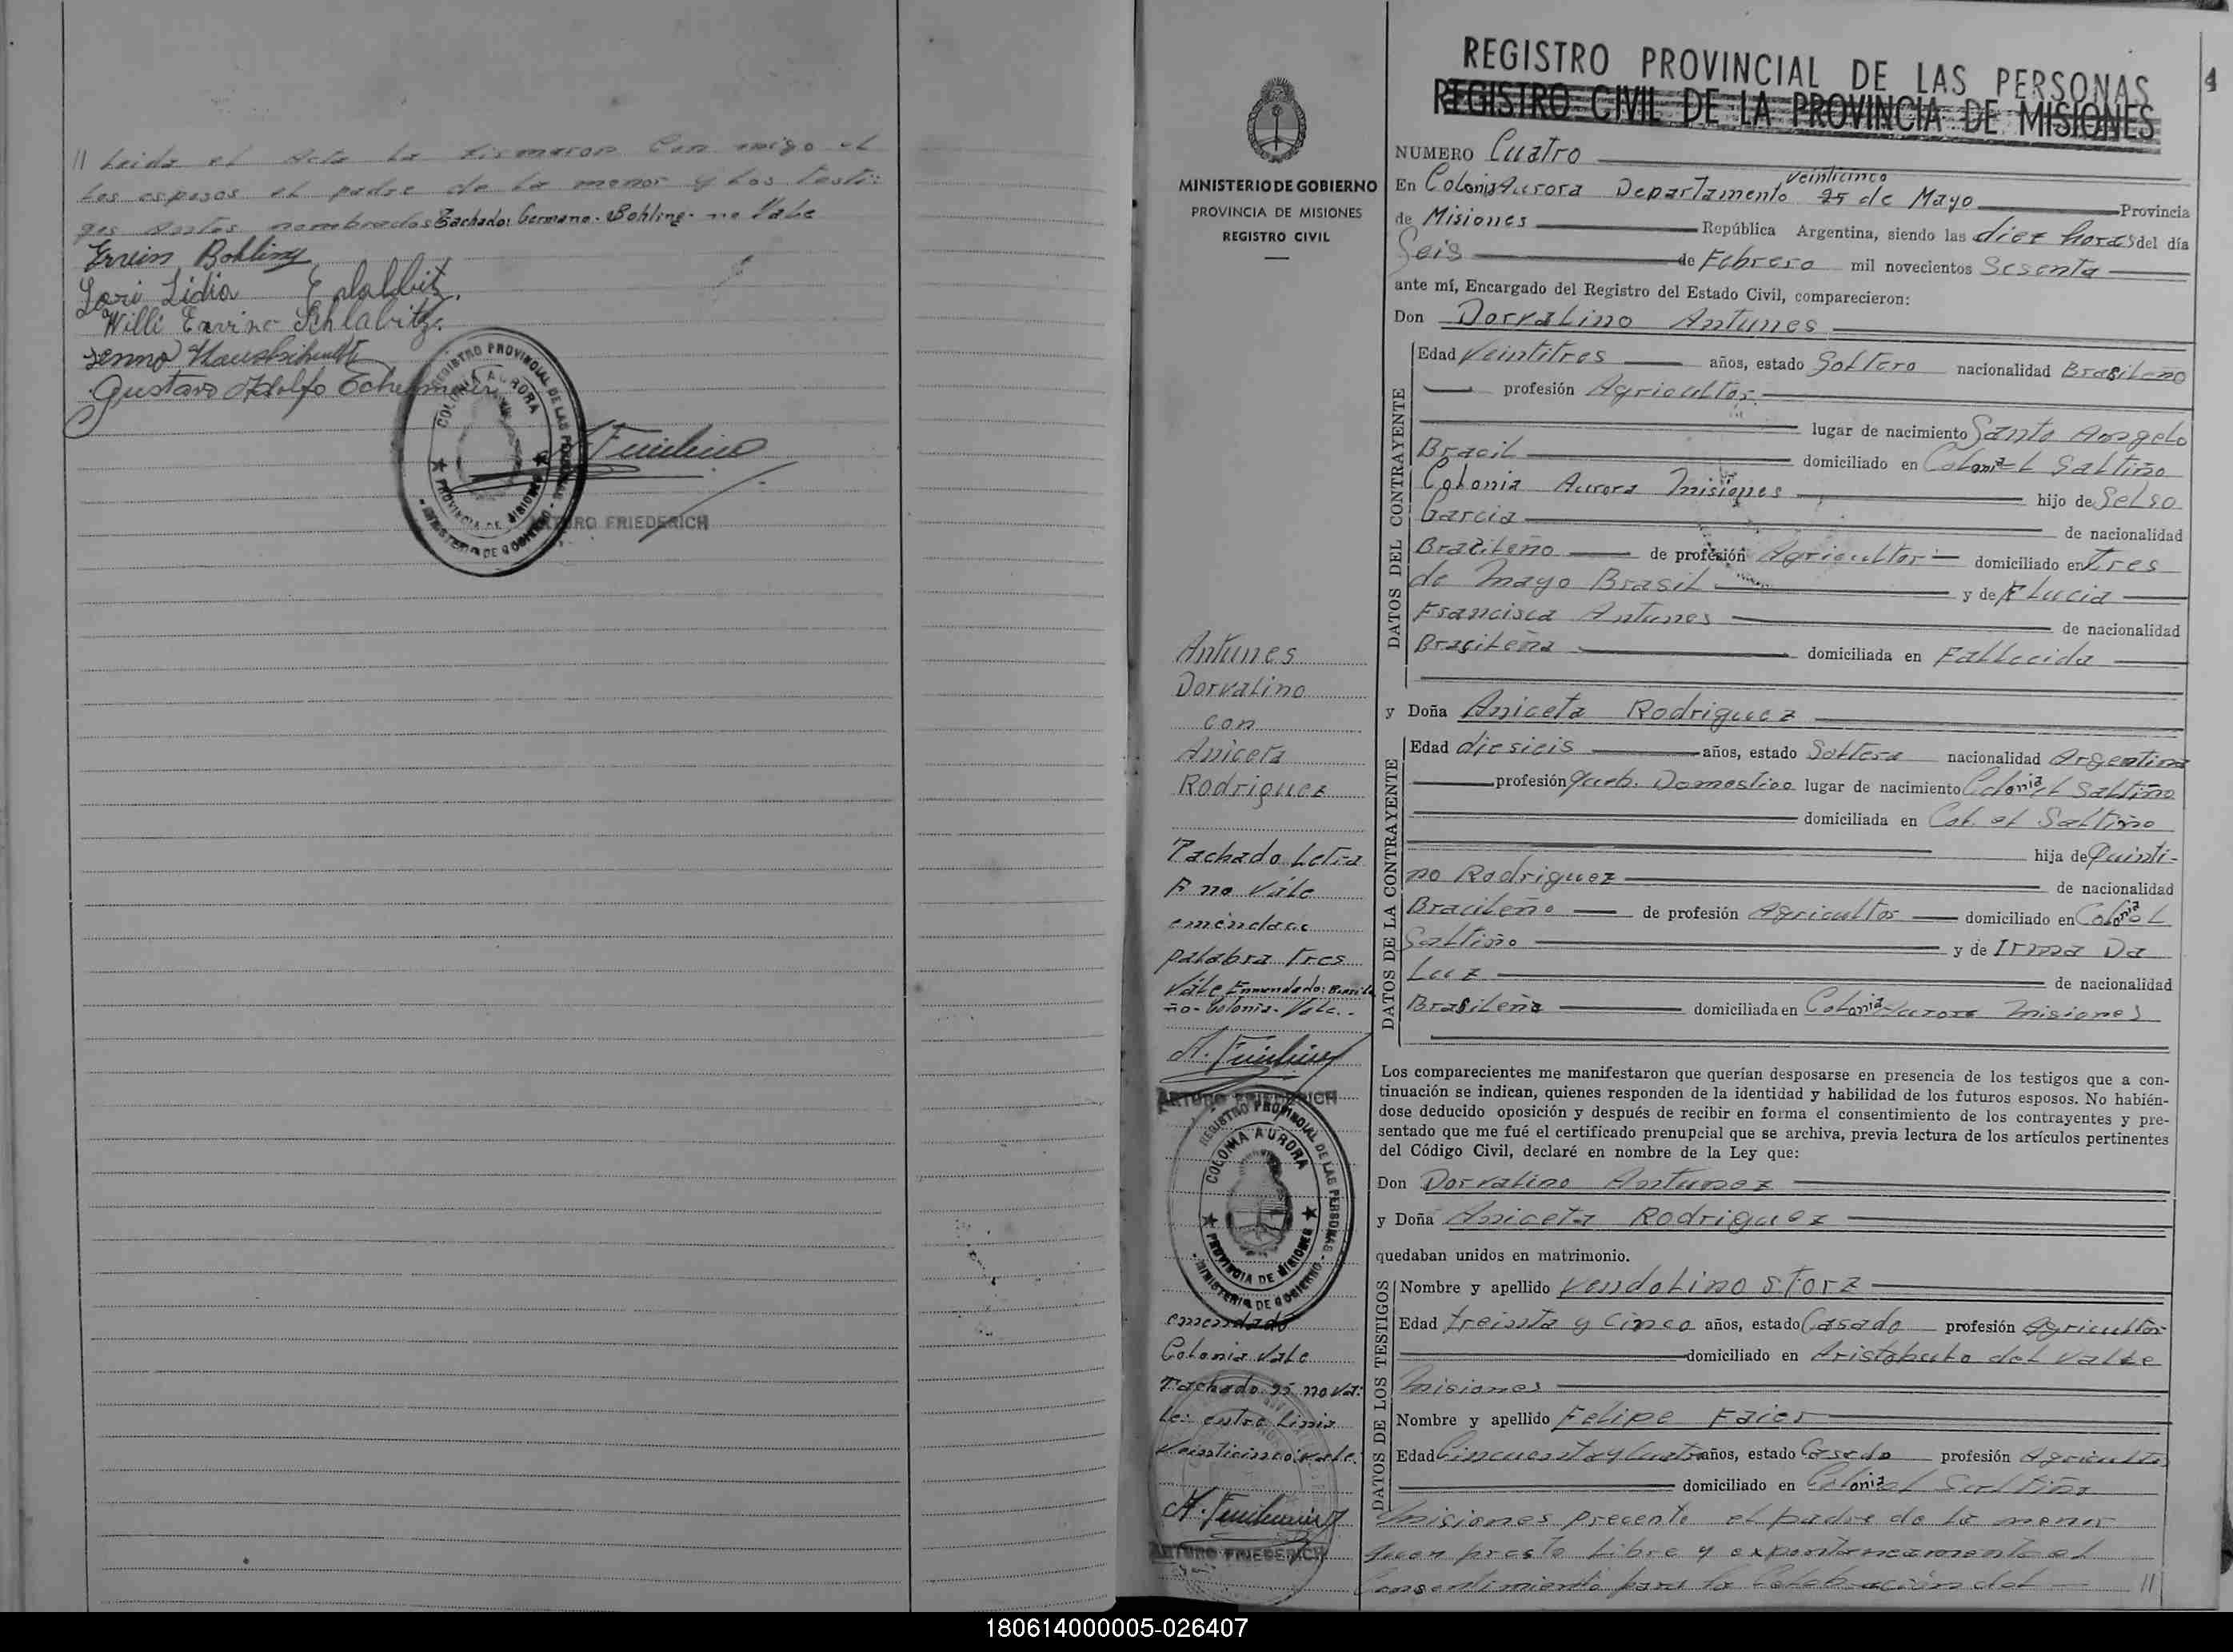 // Leida el Acta la firmaron Con migo el
los esposos el padre de la menor y los testi:
gos Antes nombrados Tachado: Germano. Bohling. no Vale
Erwin Bohling
Lori Lidia
Willi Erwino Schlabitz
Gustavo Adolfo
REGISTRO PROVINCIAL DE LAS PERSONAS
COLONIA AURORA
PROVINCIA DE MISIONES
MINISTERIO DE GOBIERNO
ARTURO FRIEDERICH
MINISTERIO DE GOBIERNO
PROVINCIA DE MISIONES
REGISTRO CIVIL
Antunes
Dorvalino
con
Aniceta
Rodriguez
Tachado Letra
F no Vale
emendado
palabra tres
Vale Enmendado: Brasile
ño- Colonia- Vale.-
A. Friederich
ARTURO FRIEDERICH
REGISTRO PROVINCIAL DE LAS PERSONAS
COLONIA AURORA
PROVINCIA DE MISIONES
MINISTERIO DE GOBIERNO
emendado
Colonia Vale
Tachado 25 no Va:
le: entre linia
Veinticinco: vale:
A. Friederich
ARTURO FRIEDERICH
REGISTRO PROVINCIAL DE LAS PERSONAS
REGISTRO CIVIL DE LA PROVINCIA DE MISIONES
4
NUMERO Cuatro
veinticinco
En Colonia Aurora Departamento 25 de Mayo Provincia
de Misiones República Argentina, siendo las diez horas del día
Seis de Febrero mil novecientos Sesenta
ante mí, Encargado del Registro del Estado Civil, comparecieron:
Don Dorvalino Antunes
DATOS DEL CONTRAYENTE
Edad Veintitres años, estado Soltero nacionalidad Brasileño
profesión Agricultor
lugar de nacimiento Santo Angelo
Bracil domiciliado en Colonia el Saltiño
Colonia Aurora Misiones hijo de Selso
Garcia de nacionalidad
Brasileño de profesión Agricultor domiciliado en tres
de Mayo Brasil y de F Lucia
Francisca Antunes de nacionalidad
Brasileña domiciliada en Fallecida
y Doña Aniceta Rodriguez
DATOS DE LA CONTRAYENTE
Edad diesicis años, estado Soltera nacionalidad Argentina
profesión Queh. Domestico lugar de nacimiento Colonia el Saltiño
domiciliada en Col. el Saltiño
hija de Quinti-
no Rodriguez de nacionalidad
Bracileño de profesión Agricultor domiciliado en Colonia el
Saltiño y de Irma Da
Luz de nacionalidad
Brasileña domiciliada en Colonia Aurora Misiones
Los comparecientes me manifestaron que querían desposarse en presencia de los testigos que a con-
tinuación se indican, quienes responden de la identidad y habilidad de los futuros esposos. No habién-
dose deducido oposición y después de recibir en forma el consentimiento de los contrayentes y pre-
sentado que me fué el certificado prenupcial que se archiva, previa lectura de los artículos pertinentes
del Código Civil, declaré en nombre de la Ley que:
Don Dorvalino Antunez
y Doña Aniceta Rodriguez
quedaban unidos en matrimonio.
DATOS DE LOS TESTIGOS
Nombre y apellido Vendolino Storz
Edad treinta y Cinco años, estado Casado profesión Agricultor
domiciliado en Aristobulo del Valle
Misiones
Nombre y apellido Felipe Faier
Edad Cincuenta y Cuatro años, estado Casado profesión Agricultor
domiciliado en Colonia el Saltiño
Misiones precente el padre de la menor
quen presto libre y expontaneamente el
Consentimiento para la Celebracion del //
180614000005-026407